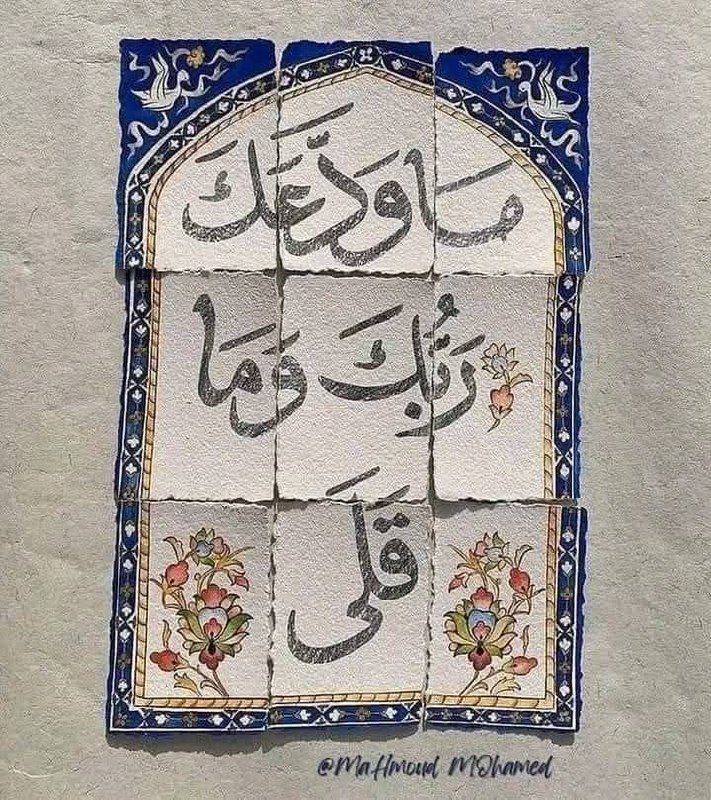 مَا وَدَّعَكَ
رَبُّكَ وَمَا
قَلَى
@Mahmoud MOhamed